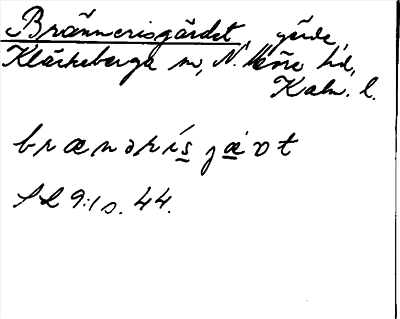 Brännerisgärdet, gärde,
Kläckeberga sn, N. Möre hd,
Kalm. l.
brænərís jæ̀ ʋt
SL 9:1 s. 44.